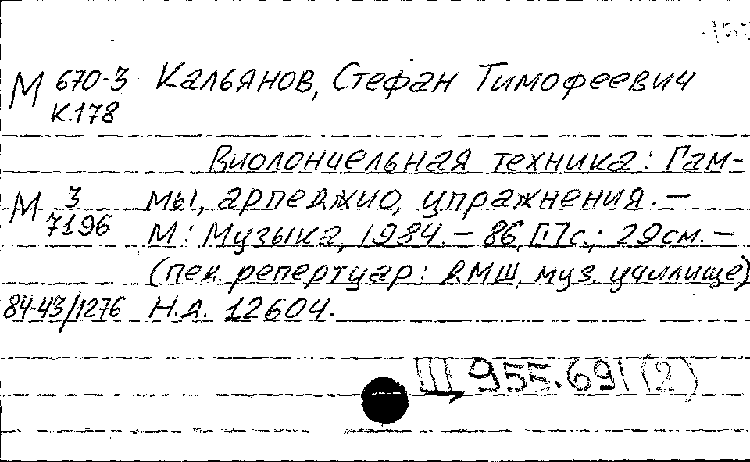 М 670-3 Кальянов, Стефан Тимофеевич
К178
Виолончельная техника: Гам-
М 3 мы, арпеджио, упражнения. —
7196 М.: Музыка, 1984. — 86, [1] с.; 29 см. —
(пед. репертуар: ДМШ, муз. училище)
84-43/1276 Н.д. 12604.
Ш 955.691 (2)